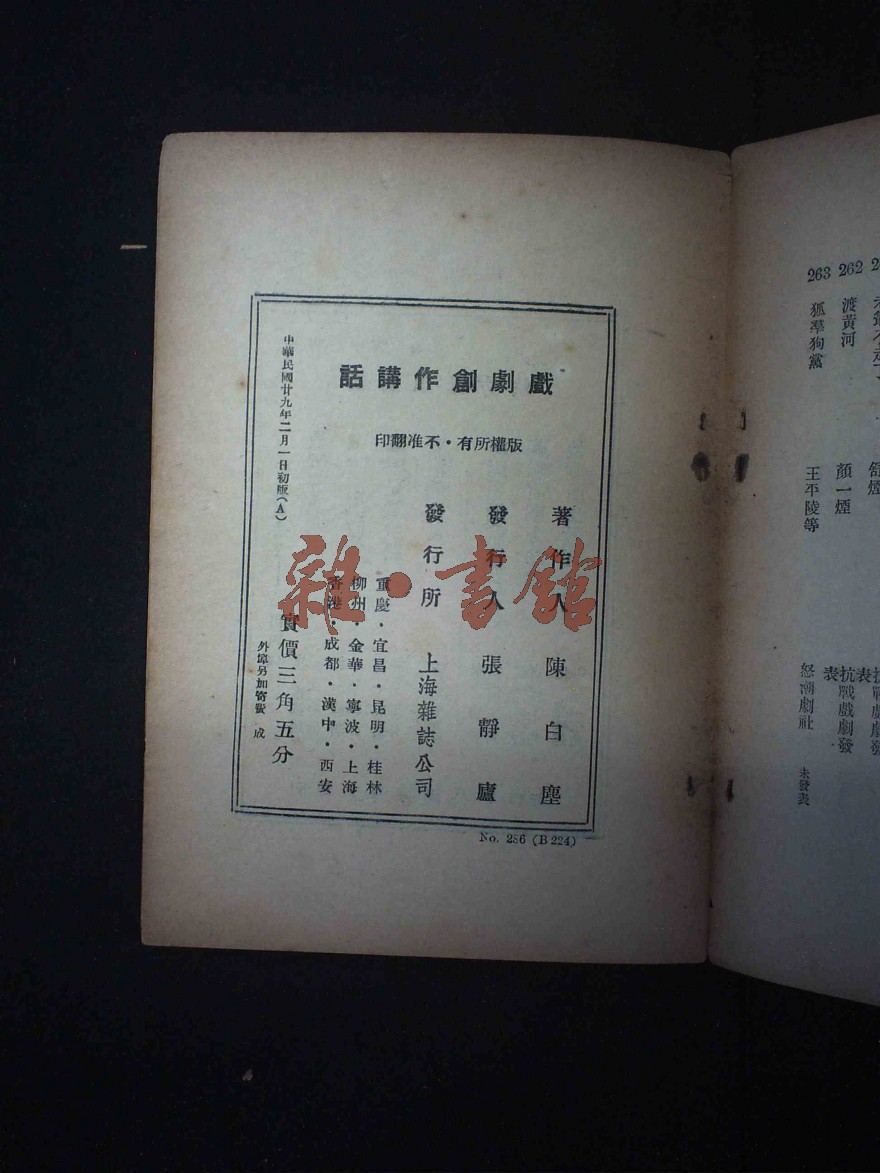 戲劇創作講話
版權所有・不准翻印
著作人 陳白塵
發行人 張靜廬
發行所 上海雜誌公司
重慶・宜昌・昆明・桂林
柳州・金華・寧波・上海
香港・成都・漢中・西安
實價三角五分
外埠另加寄費 成
中華民國廿九年二月一日初版(A)
No. 286 (B 224)
雜・書館
262 渡黃河 顏一煙 抗戰戲劇發表
263 狐羣狗黨 王平陵等 怒潮劇社 未發表